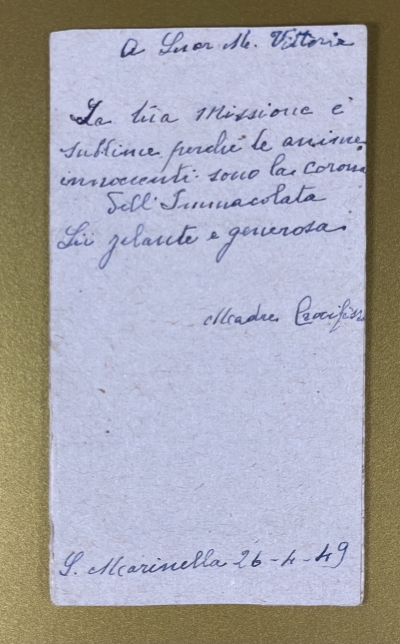 A Suor M. Vittoria
La tua Missione è
sublime perché le anime
innocenti sono la corona
dell'Immacolata
Sii zelante e generosa.
Madre Crocifissa
S. Marinella 26-4-49